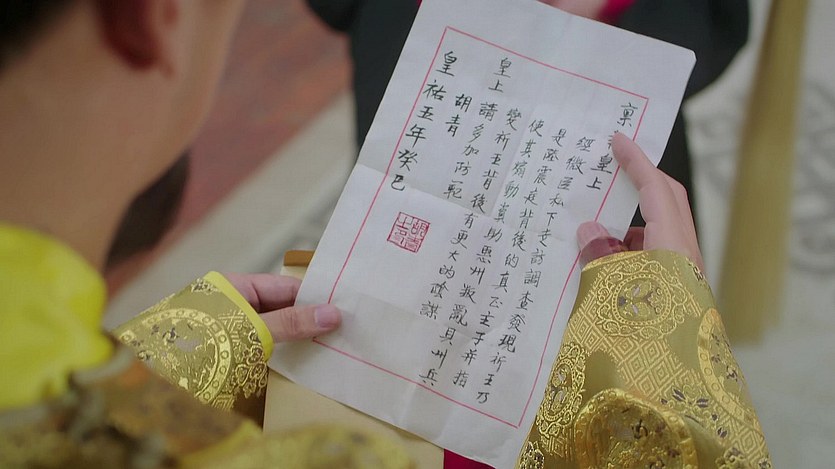 稟 皇上
經微臣私下走訪調查發現祈王乃
是陳震庭背後的真正主子并指
使其煽動冀助惠州叛亂貝州兵
變祈王背後有更大的謀
皇上請多加防範
胡青
皇祐五年癸巳